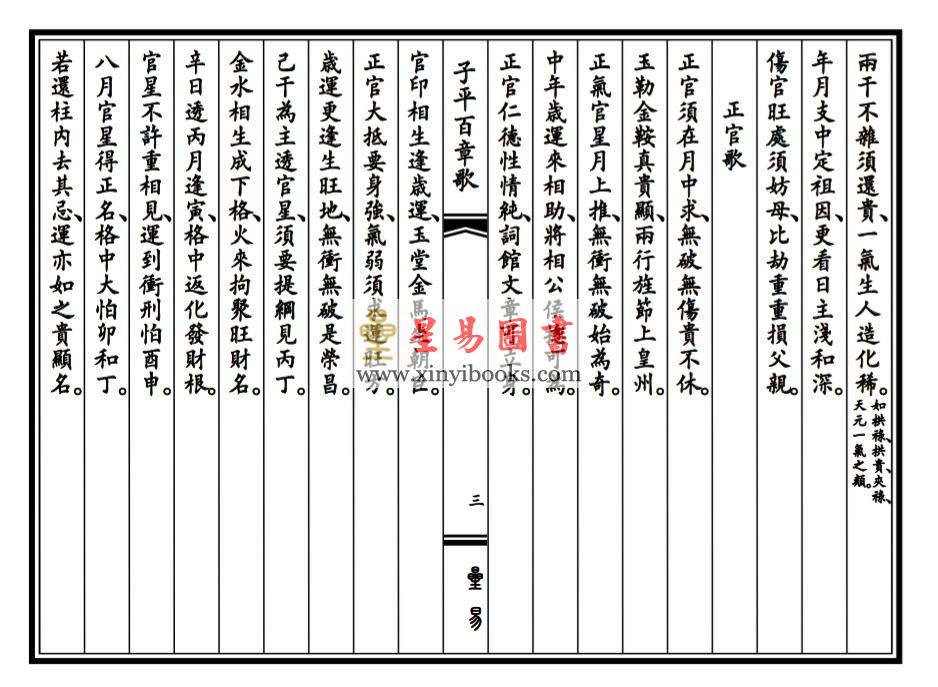 兩干不雜須還貴、一氣生人造化稀。如拱祿、拱貴、夾祿、
天元一氣之類。
年月支中定祖因、更看日主淺和深。
傷官旺處須妨母、比劫重重損父親。
正官歌
正官須在月中求、無破無傷貴不休。
玉勒金鞍真貴顯、兩行旌節上皇州。
正氣官星月上推、無衝無破始為奇。
中年歲運來相助、將相公侯
正官仁德性情純、詞館文章
子平百章歌
三
星易
官印相生逢歲運、玉堂金馬
正官大抵要身強、氣弱須求運旺方。
歲運更逢生旺地、無衝無破是榮昌。
己干為主透官星、須要提綱見丙丁。
金水相生成下格、火來拘聚旺財名。
辛日透丙月逢寅、格中返化發財根。
官星不許重相見、運到衝刑怕酉申。
八月官星得正名、格中大怕卯和丁。
若還柱內去其忌、運亦如之貴顯名。
星易圖書
www.xinyibooks.com